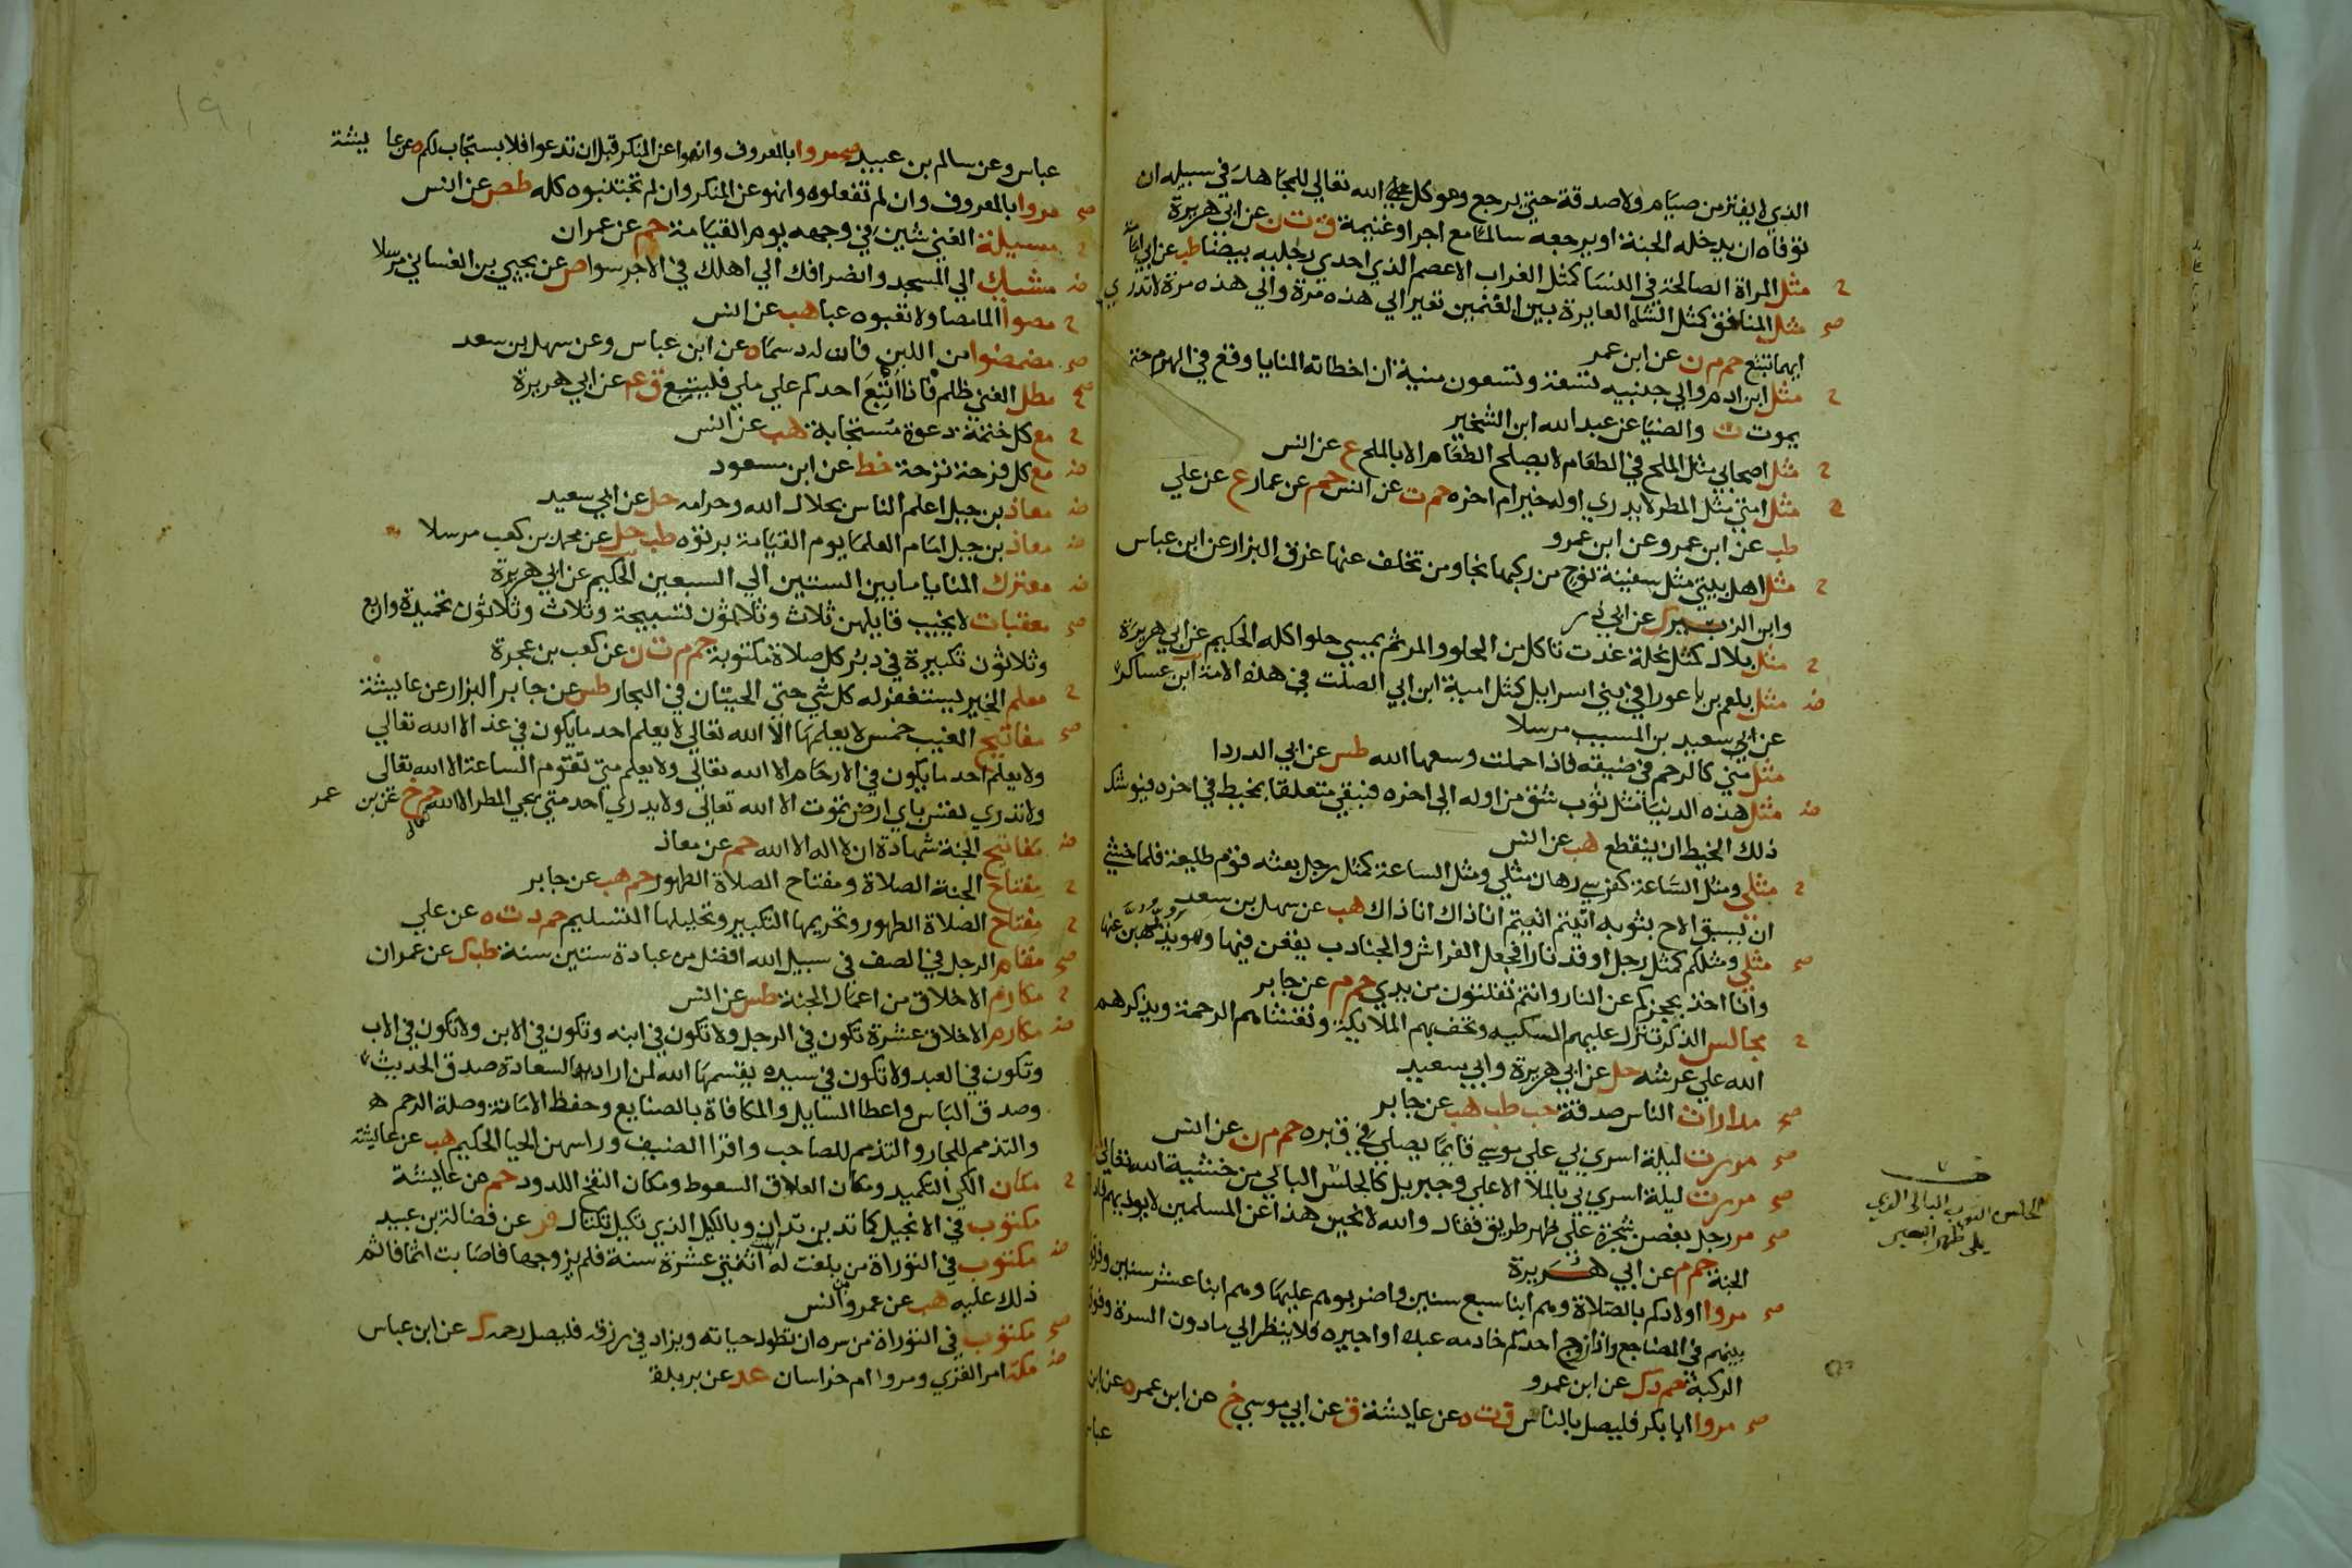 الذي لا يفتر من صيام ولا صدقة حتي يرجع وتوكل الله تعالي للمجاهد في سبيله ان
توفاه ان يدخله الجنة او يرجعه سالما مع اجر او غنيمة ق ت ن عن ابي هريرة
مثل المراة الصالحة في النسا كمثل الغراب الاعصم الذي احدي رجليه بيضا طب عن ابي امامة
مثل المنافق كمثل الشاة العايرة بين الغنمين تعير الي هذه مرة والي هذه مرة لا تدري
ايهما تتبع حم م ن عن ابن عمر
مثل ابن ادم والي جنبيه تسعة وتسعون منية ان اخطاته المنايا وقع في الهرم حتي
يموت ت والضيا عن عبد الله ابن الشخير
مثل اصحابي مثل الملح في الطعام لا يصلح الطعام الا بالملح ع عن انس
مثل امتي مثل المطر لا يدري اوله خير ام اخره حم ت عن انس حم عن عمار ع عن علي
طب عن ابن عمر وعن ابن عمرو
مثل اهل بيتي مثل سفينة نوح من ركبها نجا ومن تخلف عنها غرق البزار عن ابن عباس
وابن الزبير ك عن ابي ذر
مثل بلال كمثل نحلة غدت تاكل من الحلو والمر ثم يمسي حلوا كله الحكيم عن ابي هريرة
مثل بلعم بن باعورا في بني اسرايل كمثل امية ابن ابي الصلت في هذه الامة ابن عساكر
عن سعيد بن المسيب مرسلا
مثل مني كالرحم في ضيقه فاذا حملت وسعها الله طس عن ابي الدردا
مثل هذه الدنيا مثل ثوب شق من اوله الي اخره فبقي متعلقا بخيط في اخره فيوشك
ذلك الخيط ان ينقطع هب عن انس
مثلي ومثل الساعة كفرسي رهان مثلي ومثل الساعة كمثل رجل بعثه قوم طليعة فلما خشي
ان يسبق الاح بثوبه اتيتم اتيتم انا ذاك انا ذاك هب عن سهل بن سعد
مثلي ومثلكم كمثل رجل اوقد نارا فجعل الفراش والجنادب يقعن فيها وهو يذبهن عنها
وانا اخذ بحجزكم عن النار وانتم تفلتون من يدي حم م عن جابر
مجالس الذكر تنزل عليهم السكينه وتحف بهم الملايكة وتغشاهم الرحمة ويذكرهم
الله علي عرشه حل عن ابي هريرة وابي سعيد
مدارات الناس صدقة حب طب هب عن جابر
مررت ليلة اسري بي علي موسي قايما يصلي في قبره حم م ن عن انس
مررت ليلة اسري بي بالملا الاعلي وجبريل كالحلس البالي من خشية الله تعالي
مر رجل بغصن شجرة علي ظهر طريق فقال والله لانحين هذا عن المسلمين لا يوذيهم
الجنة حم م عن ابي هريرة
مروا اولادكم بالصلاة وهم ابنا سبع سنين واضربوهم عليها وهم ابنا عشر سنين وفرقوا
بينهم في المضاجع واذا زوج احدكم خادمه عبده او اجيره فلا ينظر الي ما دون السرة وفوق
الركبة حم د ك عن ابن عمرو
مروا ابا بكر فليصل بالناس ق ت ه عن عايشة ق عن ابي موسي خ عن ابن عمر ه عن ابن
عباس
الحلس الثوب البالي الذي
يلي ظهر البعير
عباس وعن سالم بن عبيد مروا بالمعروف وانهوا عن المنكر قبل ان تدعوا فلا يستجاب لكم ه عن عايشة
مروا بالمعروف وان لم تفعلوه وانهو عن المنكر وان لم تجتنبوه كله طص عن انس
مسيلة الغني شين في وجهه يوم القيامة حم عن عمران
مشيك الي المسجد وانصرافك الي اهلك في الاجر سوا ص عن يحيي بن الغساني مرسلا
مصوا الما مصا ولا تعبوه عبا هب عن انس
مضمضوا من اللبن فان له دسما ه عن ابن عباس وعن سهل بن سعد
مطل الغني ظلم فاذا اتبع احدكم علي ملي فليتبع ق عم عن ابي هريرة
مع كل ختمة دعوة مستجابة هب عن انس
مع كل فرحة ترحة خط عن ابن مسعود
معاذ بن جبل اعلم الناس بحلال الله وحرامه حل عن ابي سعيد
معاذ بن جبل امام العلما يوم القيامة برتوه طب حل عن محمد بن كعب مرسلا
معترك المنايا ما بين الستين الي السبعين الحكيم عن ابي هريرة
معقبات لا يخيب قايلهن ثلاث وثلاثون تسبيحة وثلاث وثلاثون تحميدة واربع
وثلاثون تكبيرة في دبر كل صلاة مكتوبة حم م ت ن عن كعب بن عجرة
معلم الخير يستغفر له كل شي حتي الحيتان في البحار طس عن جابر البزار عن عايشة
مفاتيح الغيب خمس لا يعلمها الا الله تعالي لا يعلم احد ما يكون في غد الا الله تعالي
ولا يعلم احد ما يكون في الارحام الا الله تعالي ولا يعلم متي تقوم الساعة الا الله تعالي
ولا تدري نفس باي ارض تموت الا الله تعالي ولا يدري احد متي يجي المطر الا الله تعالي حم خ عن بن عمر
مفاتيح الجنة شهادة ان لا اله الا الله حم عن معاذ
مفتاح الجنة الصلاة ومفتاح الصلاة الطهور حم هب عن جابر
مفتاح الصلاة الطهور وتحريمها التكبير وتحليلها التسليم حم د ت ه عن علي
مقام الرجل في الصف في سبيل الله افضل من عبادة ستين سنة طب ك عن عمران
مكارم الاخلاق من اعمال الجنة طس عن انس
مكارم الاخلاق عشرة تكون في الرجل ولا تكون في ابنه وتكون في الابن ولا تكون في الاب
وتكون في العبد ولا تكون في سيده يقسمها الله لمن اراد به السعادة صدق الحديث
وصدق الباس واعطا السايل والمكافاة بالصنايع وحفظ الامانة وصلة الرحم
والتذمم للجار والتذمم للصاحب واقرا الضيف وراسهن الحيا الحكيم هب عن عايشة
مكان الكي التكميد ومكان العلاق السعوط ومكان النفخ اللدود حم عن عايشة
مكتوب في الانجيل كما تدين تدان وبالكيل الذي تكيل تكتال فر عن فضالة بن عبيد
مكتوب في التوراة من بلغت له ابنة اثنتي عشرة سنة فلم يزوجها فاصابت اثما فاثم
ذلك عليه هب عن عمر وانس
مكتوب في التوراة من سره ان تطول حياته ويزاد في رزقه فليصل رحمه ك عن ابن عباس
مكة ام القري ومروا ام خراسان عد عن بريدة